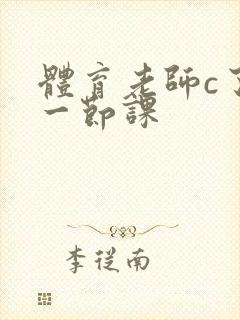 體育老師c了
一節課
李從南